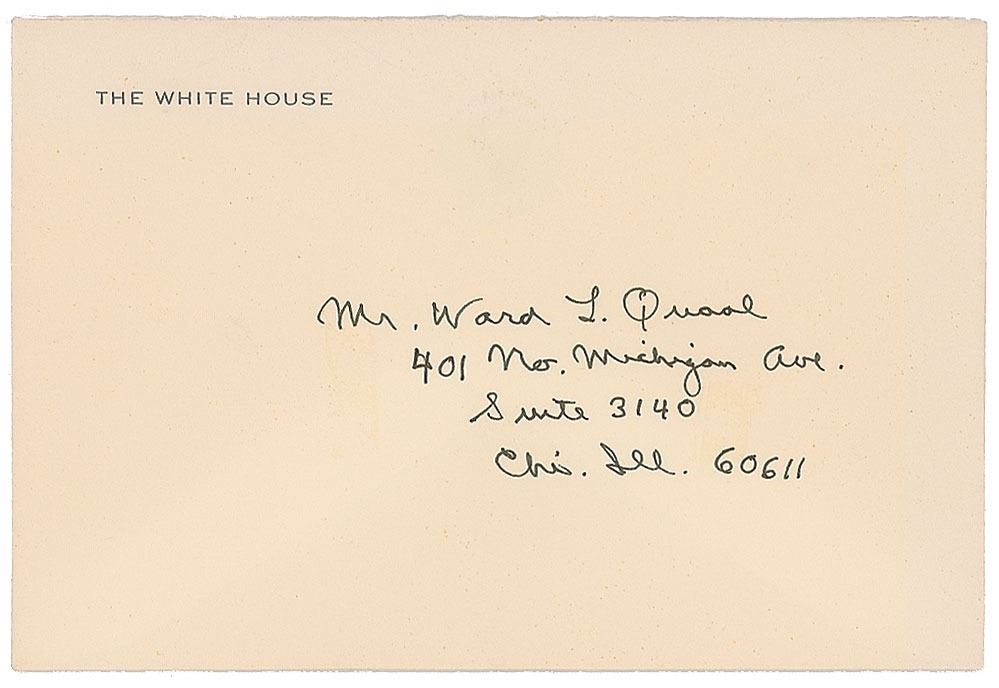 THE WHITE HOUSE
Mr. Ward L. Quaal
401 No. Michigan Ave.
Suite 3140
Chi. Ill. 60611